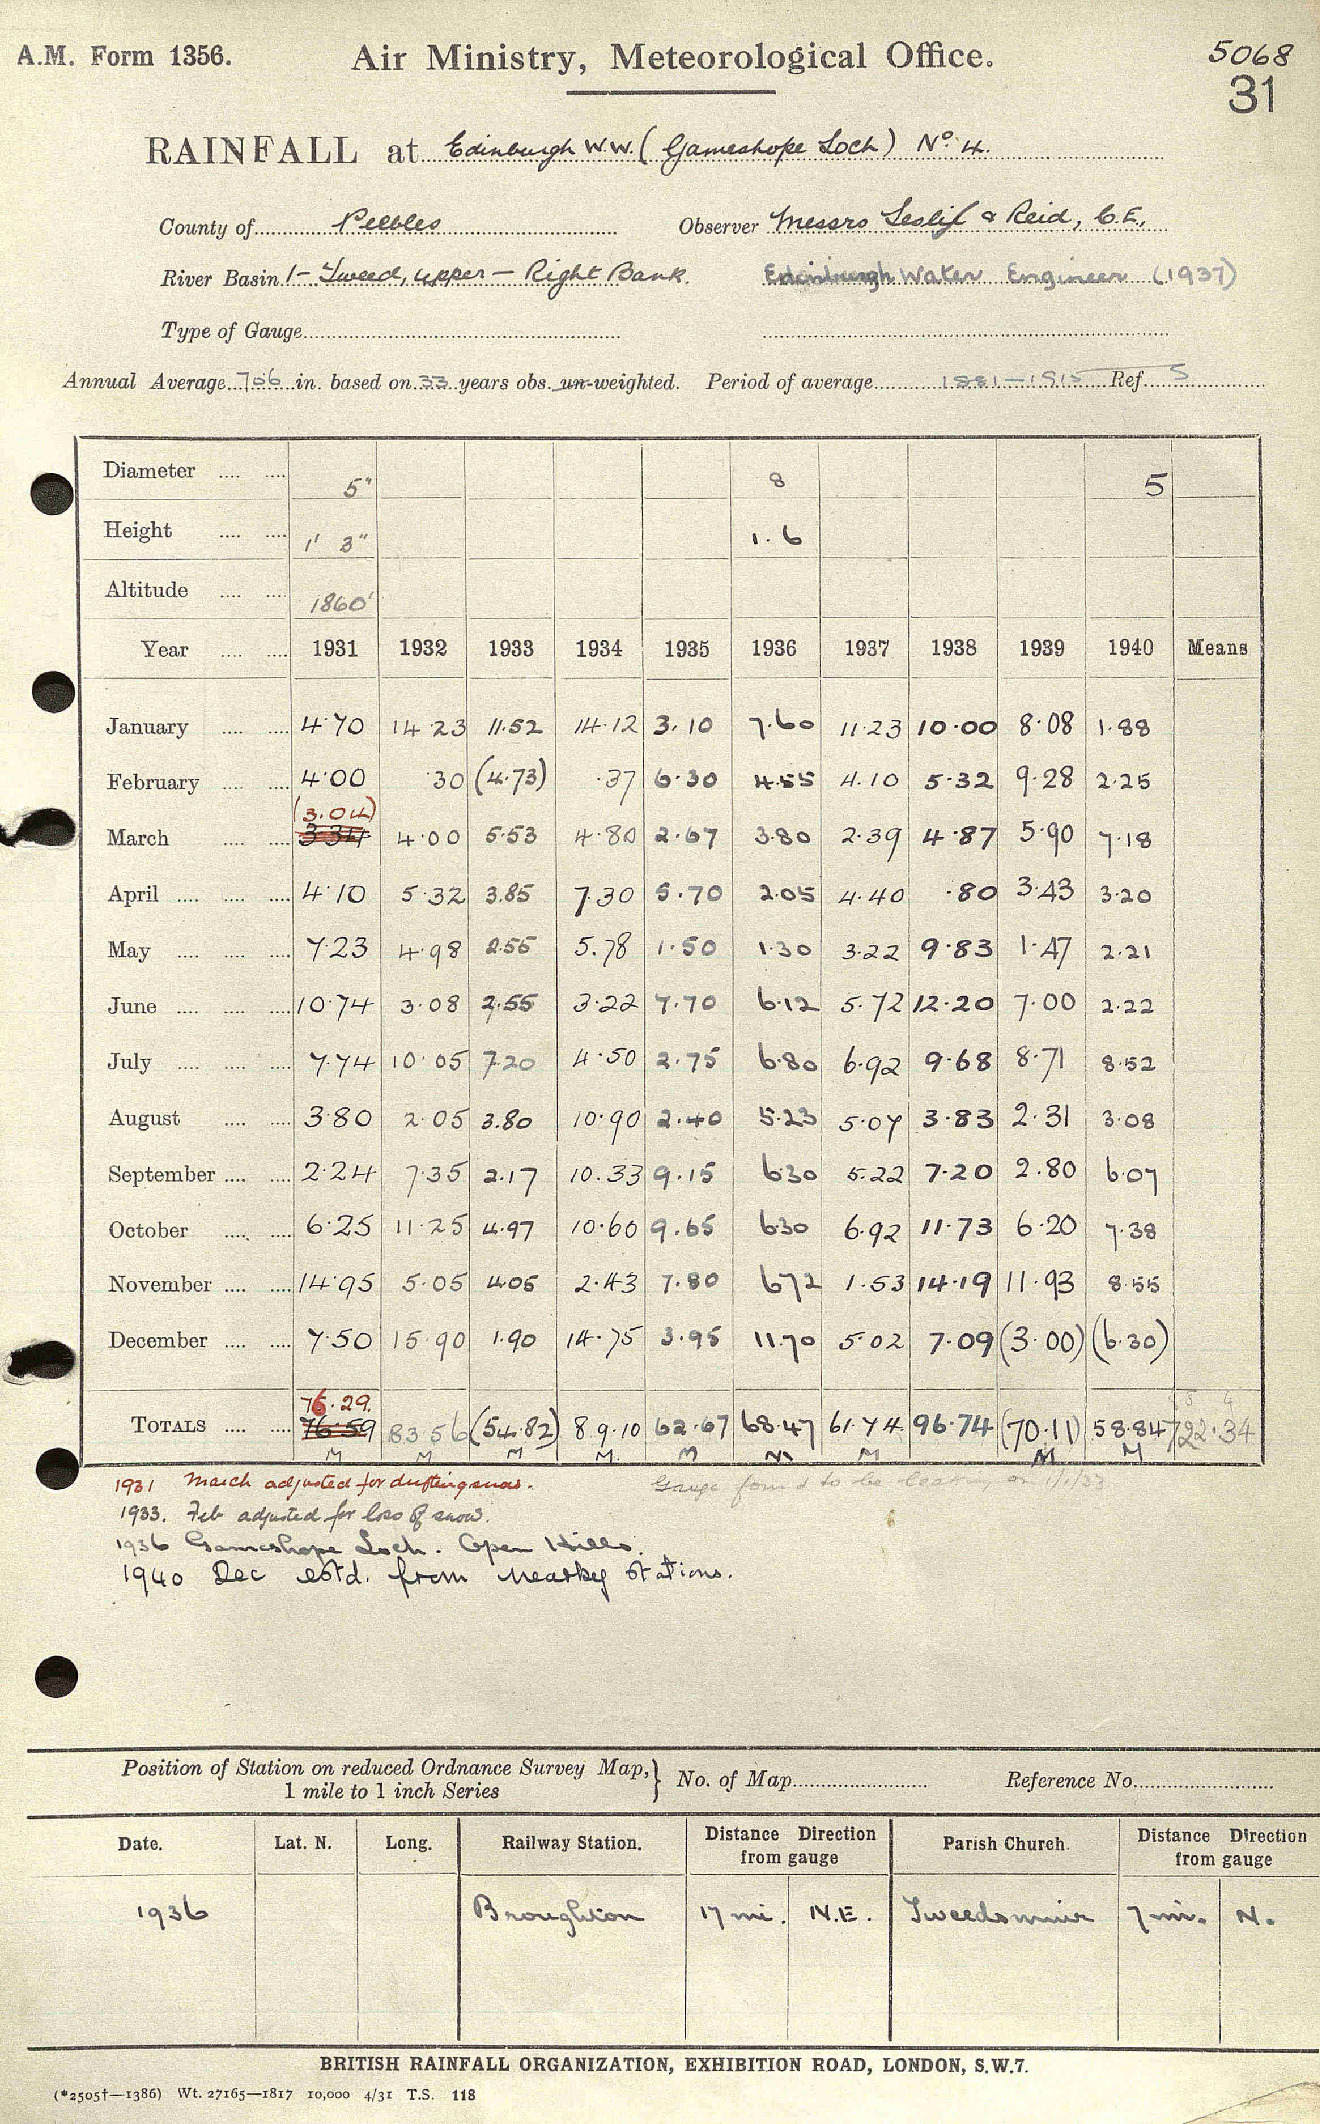 A.M. Form 1356.
Air Ministry, Meteorological Office.
5068
31
RAINFALL at Edinburgh W.W. (Gameshope Loch) No. 4.
County of Peebles
Observer Messrs Leslie & Reid, C.E.,
River Basin 1 - Tweed, upper - Right Bank.
Edinburgh Water Engineer (1937)
Type of Gauge
Annual Average 706 in. based on 33 years obs. un-weighted. Period of average 1881-1915 Ref. S
Diameter 5" 8 5
Height 1' 3" 1.6
Altitude 1860'
Year 1931 1932 1933 1934 1935 1936 1937 1938 1939 1940 Means
January 4.70 14.23 11.52 14.12 3.10 7.60 11.23 10.00 8.08 1.88
February 4.00 .30 (4.73) .37 6.30 4.55 4.10 5.32 9.28 2.25
(3.04)
March 3.34 4.00 5.53 4.80 2.67 3.80 2.39 4.87 5.90 7.18
April 4.10 5.32 3.85 7.30 5.70 2.05 4.40 .80 3.43 3.20
May 7.23 4.98 2.55 5.78 1.50 1.30 3.22 9.83 1.47 2.21
June 10.74 3.08 2.55 3.22 7.70 6.12 5.72 12.20 7.00 2.22
July 7.74 10.05 7.20 4.50 2.75 6.80 6.92 9.68 8.71 8.52
August 3.80 2.05 3.80 10.90 2.40 5.23 5.07 3.83 2.31 3.08
September 2.24 7.35 2.17 10.33 9.15 6.30 5.22 7.20 2.80 6.07
October 6.25 11.25 4.97 10.60 9.65 6.30 6.92 11.73 6.20 7.38
November 14.95 5.05 4.05 2.43 7.80 6.72 1.53 14.19 11.93 8.55
December 7.50 15.90 1.90 14.75 3.95 11.70 5.02 7.09 (3.00) (6.30)
76.29.
TOTALS 76.59 83.56 (54.82) 89.10 62.67 68.47 61.74 96.74 (70.11) 58.84 722.34
M M M M M M M M M
1931 March adjusted for drifting snow.
Gauge found to be leaking on 1/1/33
1933. Feb adjusted for loss of snow.
1936 Gameshope Loch. Open Hills.
1940 Dec estd. from nearby stations.
Position of Station on reduced Ordnance Survey Map,
1 mile to 1 inch Series
No. of Map
Reference No.
Date. Lat. N. Long. Railway Station. Distance Direction from gauge Parish Church. Distance Direction from gauge
1936 Broughton 17 mi. N.E. Tweedsmuir 7 mi. N.
BRITISH RAINFALL ORGANIZATION, EXHIBITION ROAD, LONDON, S.W.7.
(*2505†—1386) Wt. 27165—1817 10,000 4/31 T.S. 118